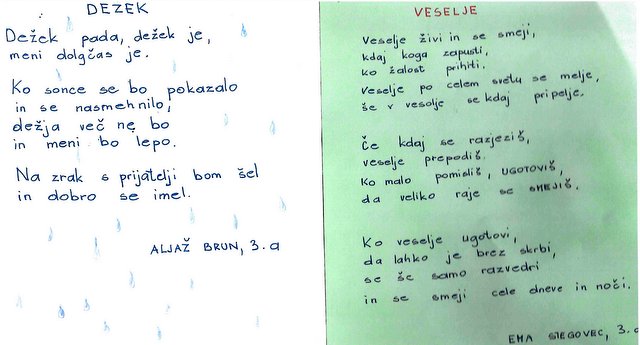 DEZEK
Dežek pada, dežek je,
meni dolgčas je.
Ko sonce se bo pokazalo
in se nasmehnilo,
dežja več ne bo
in meni bo lepo.
Na zrak s prijatelji bom šel
in dobro se imel.
ALJAŽ BRUN, 3.a
VESELJE
Veselje živi in se smeji,
kdaj koga zapusti,
ko žalost prihiti.
Veselje po celem svetu se melje,
še v vesolje se kdaj pripelje.
Če kdaj se razjeziš,
veselje prepodiš.
Ko malo pomisliš, UGOTOVIŠ,
da veliko raje se SMEJIŠ.
Ko veselje ugotovi,
da lahko je brez skrbi,
se še samo razvedri
in se smeji cele dneve in noči.
EMA STEGOVEC, 3.a